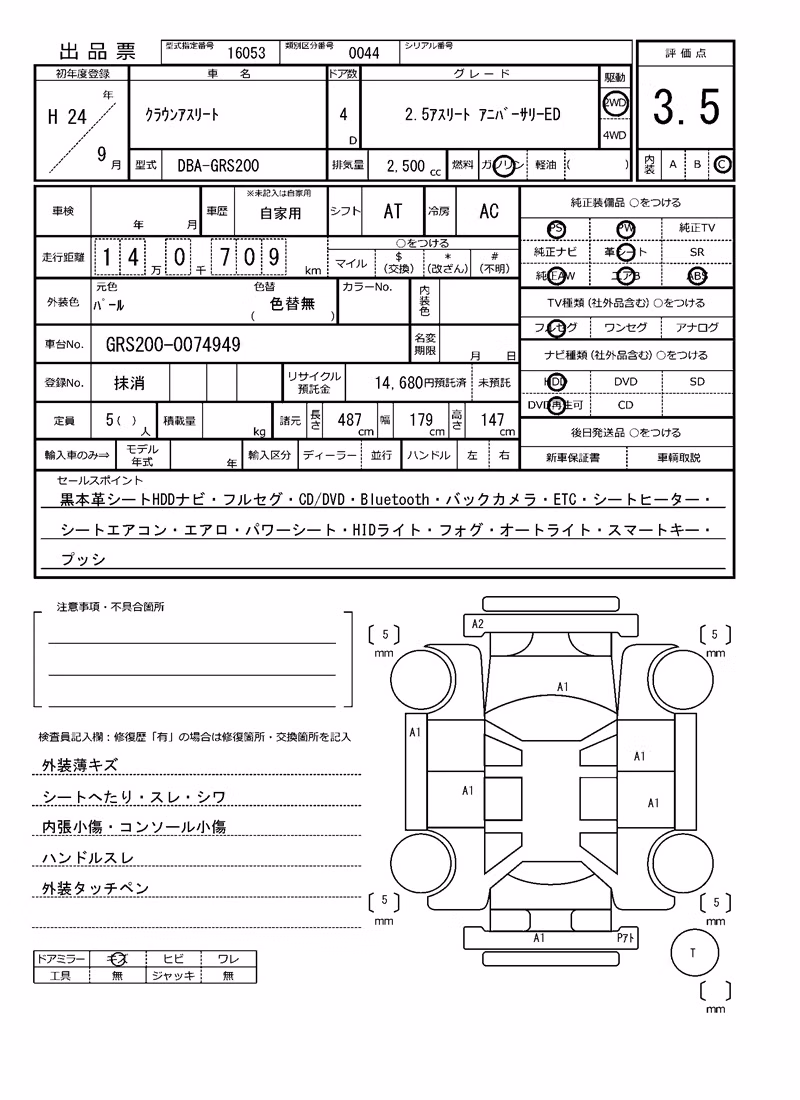 出品票
型式指定番号 16053 類別区分番号 0044 シリアル番号
評価点
3.5
内装 A B C
初年度登録 車名 ドア数 グレード 駆動
H 24 年 9 月
クラウンアスリート
4 D
2.5アスリート アニバーサリーED
2WD
4WD
型式 DBA-GRS200 排気量 2,500 cc 燃料 ガソリン 軽油 ( )
車検 年 月 車歴 ※未記入は自家用 自家用 シフト AT 冷房 AC
走行距離 1 4 万 0 千 7 0 9 km
○をつける
マイル $(交換) *(改ざん) #(不明)
外装色 元色 パール 色替 色替無 ( ) カラーNo. 内装色
車台No. GRS200-0074949 名変期限 月 日
登録No. 抹消 リサイクル預託金 14,680円預託済 未預託
定員 5( ) 人 積載量 kg 諸元 長さ 487cm 幅 179cm 高さ 147cm
輸入車のみ⇒ モデル年式 年 輸入区分 ディーラー 並行 ハンドル 左 右
純正装備品 ○をつける
PS PW 純正TV
純正ナビ 革シート SR
純正AW エアB ABS
TV種類(社外品含む)○をつける
フルセグ ワンセグ アナログ
ナビ種類(社外品含む)○をつける
HDD DVD SD
DVD再生可 CD
後日発送品 ○をつける
新車保証書 車輌取説
セールスポイント
黒本革シートHDDナビ・フルセグ・CD/DVD・Bluetooth・バックカメラ・ETC・シートヒーター・
シートエアコン・エアロ・パワーシート・HIDライト・フォグ・オートライト・スマートキー・
プッシ
注意事項・不具合箇所
検査員記入欄：修復歴「有」の場合は修復箇所・交換箇所を記入
外装薄キズ
シートへたり・スレ・シワ
内張小傷・コンソール小傷
ハンドルスレ
外装タッチペン
ドアミラー キズ ヒビ ワレ
工具 無 ジャッキ 無
A2
5 mm
5 mm
A1
A1
A1
A1
A1
5 mm
5 mm
A1 Pアト
T
mm